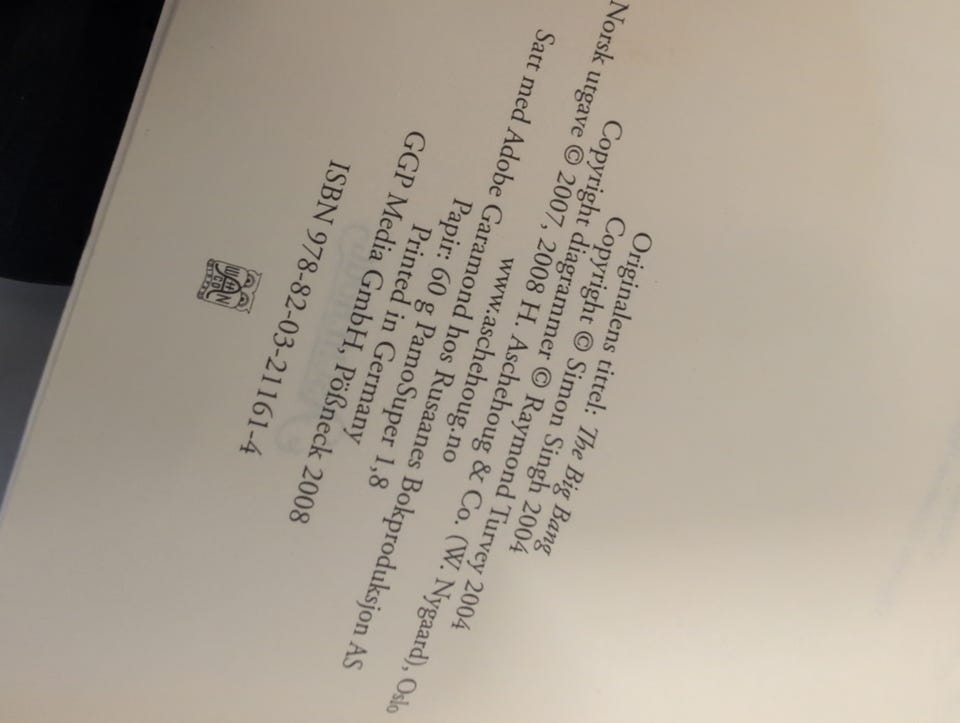 Originalens tittel: The Big Bang
Copyright © Simon Singh 2004
Copyright diagrammer © Raymond Turvey 2004
Norsk utgave © 2007, 2008 H. Aschehoug & Co. (W. Nygaard), Oslo
www.aschehoug.no
Satt med Adobe Garamond hos Rusaanes Bokproduksjon AS
Papir: 60 g PamoSuper 1,8
Printed in Germany
GGP Media GmbH, Pößneck 2008
ISBN 978-82-03-21161-4